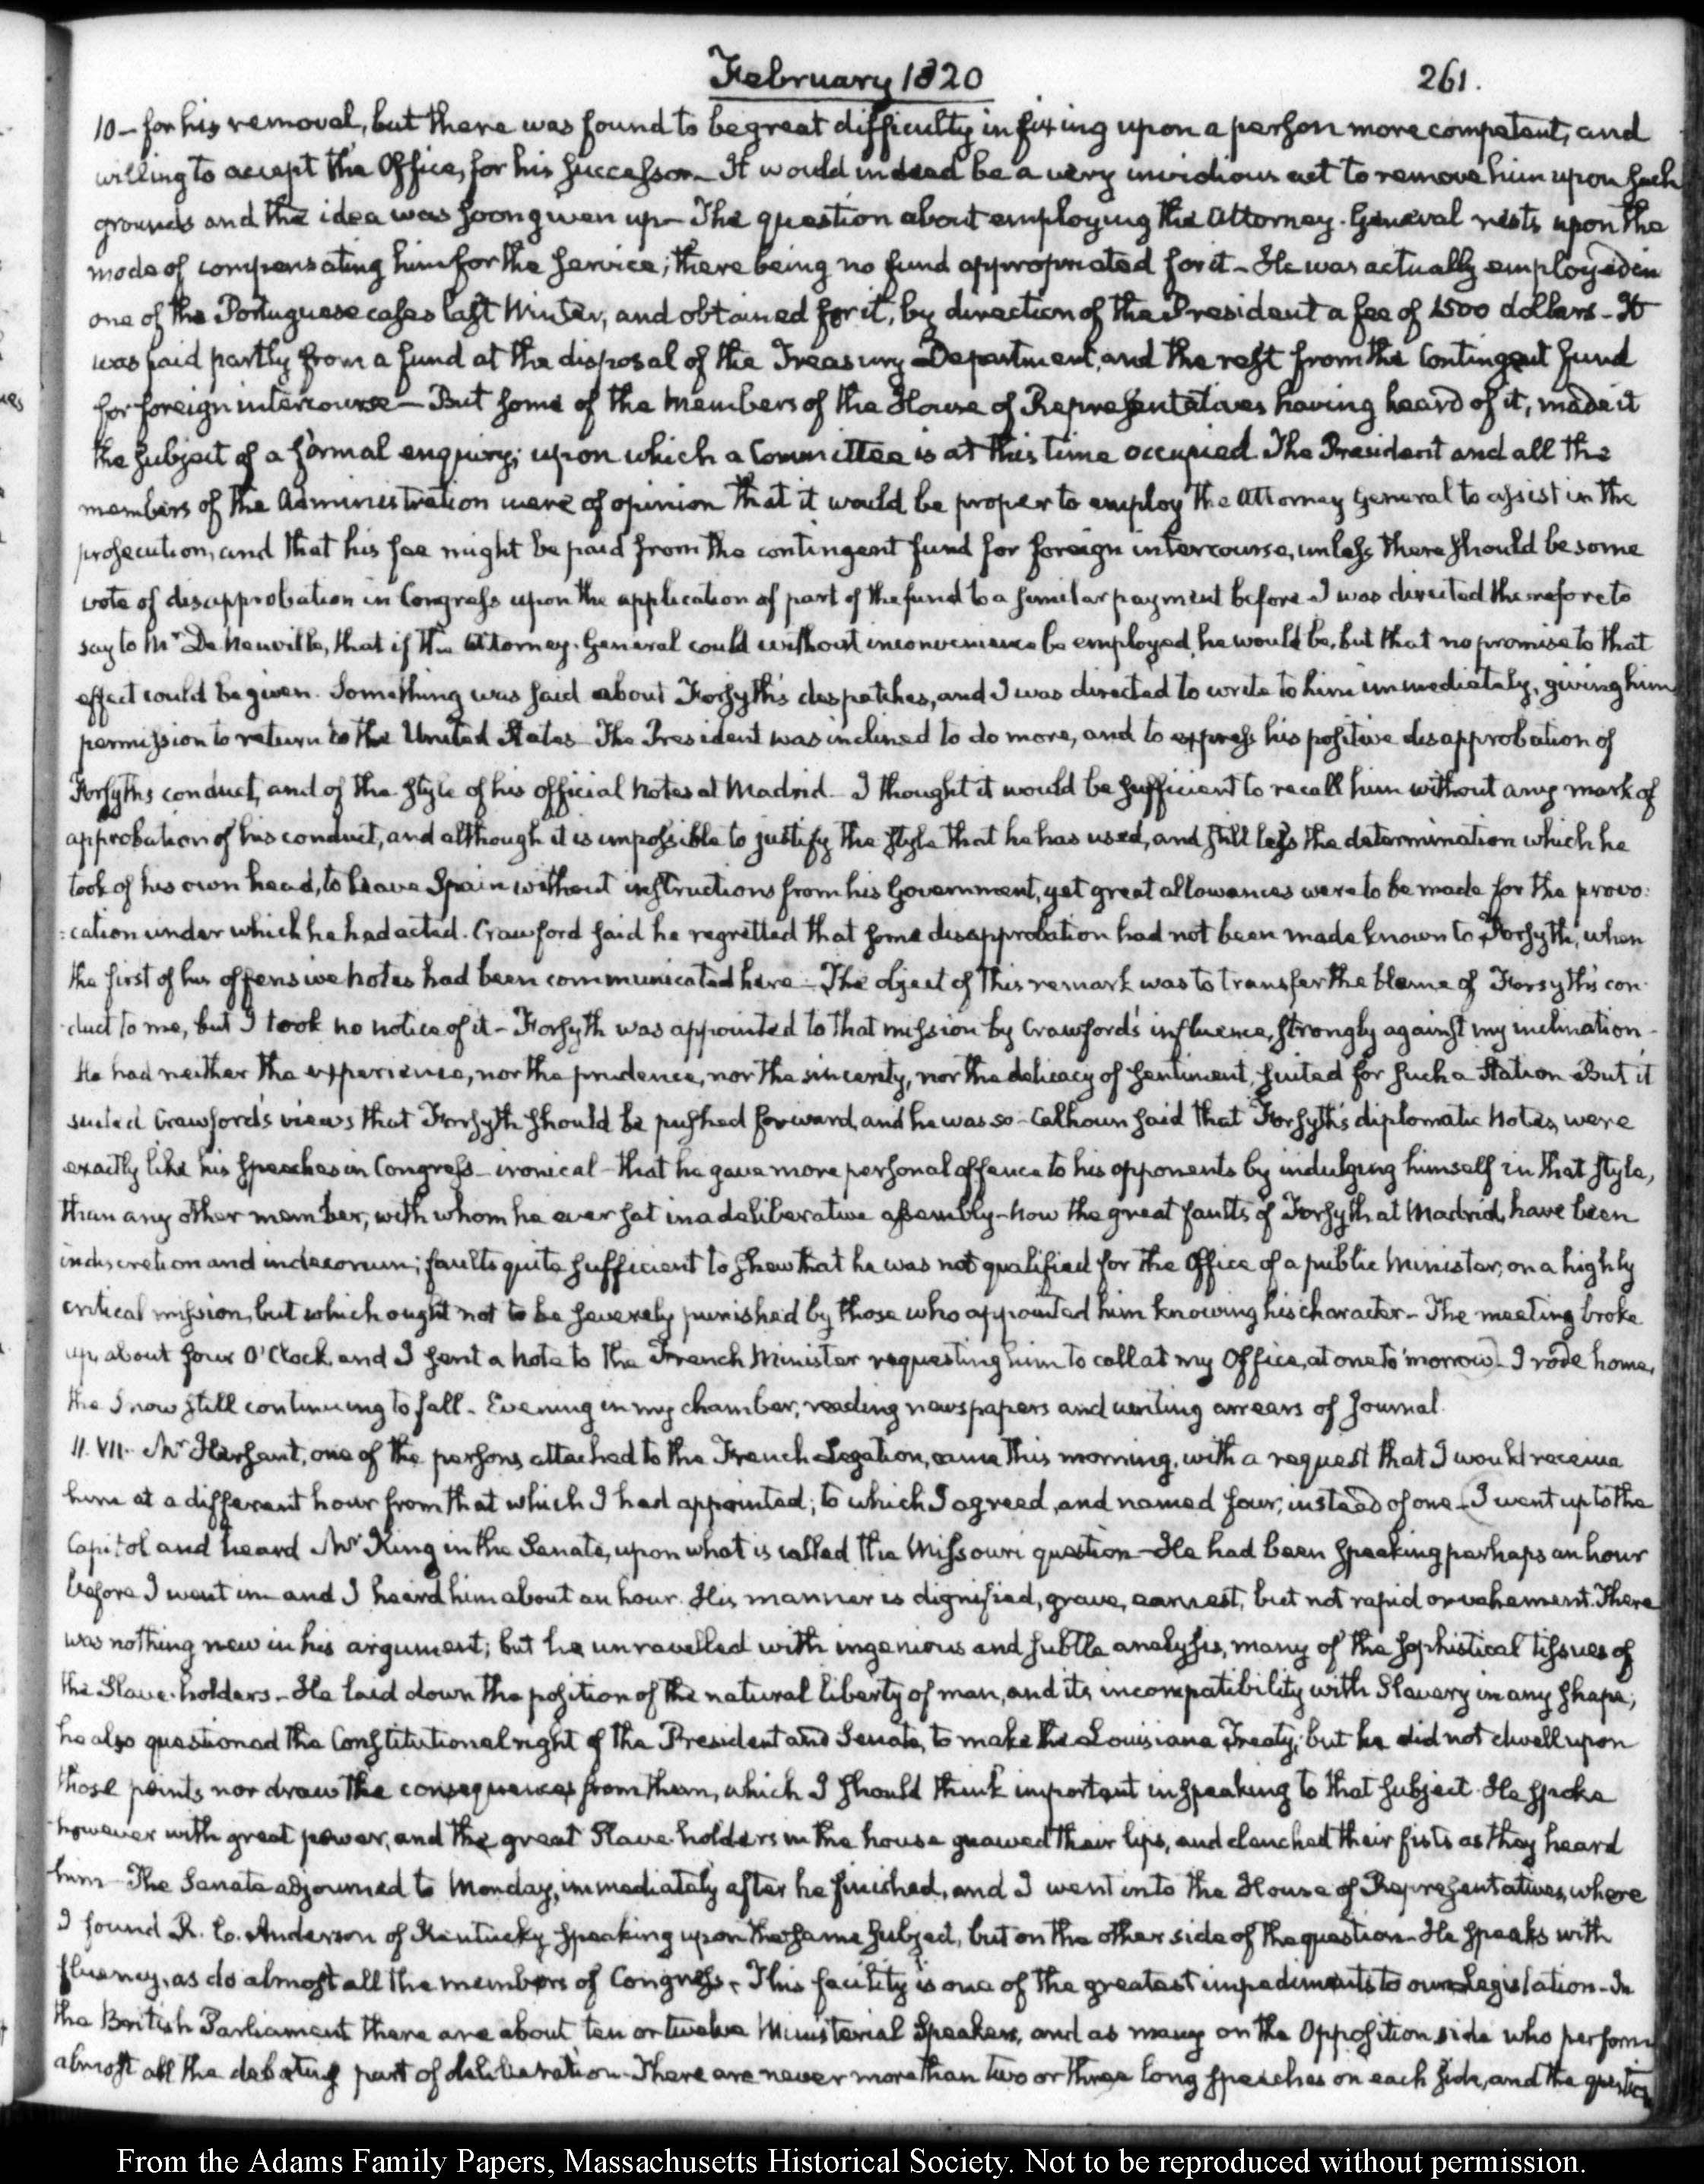 February 1820
261.
10 – for his removal, but there was found to be great difficulty in fixing upon a person more competent, and
willing to accept the Office, for his successor – It would indeed be a very invidious act to remove him upon such
grounds and the idea was soon given up – The question about employing the Attorney-General rests upon the
mode of compensating him for the service; there being no fund appropriated for it – He was actually employed in
one of the Portuguese cases last Winter, and obtained for it, by direction of the President a fee of 1500 dollars – It
was paid partly from a fund at the disposal of the Treasury Department, and the rest from the Contingent fund
for foreign intercourse – But some of the Members of the House of Representatives having heard of it, made it
the subject of a formal enquiry; upon which a Committee is at this time occupied. The President and all the
members of the Administration were of opinion that it would be proper to employ the Attorney General to assist in the
prosecution, and that his fee might be paid from the contingent fund for foreign intercourse, unless there should be some
vote of disapprobation in Congress upon the application of part of the fund to a similar payment before – I was directed therefore to
say to Mr De Neuville, that if the Attorney-General could without inconvenience be employed, he would be, but that no promise to that
effect could be given. Something was said about Forsyth's despatches, and I was directed to write to him immediately, giving him
permission to return to the United States – The President was inclined to do more, and to express his positive disapprobation of
Forsyth's conduct, and of the style of his official Notes at Madrid – I thought it would be sufficient to recall him without any mark of
approbation of his conduct, and although it is impossible to justify the style that he has used, and still less the determination which he
took of his own head, to leave Spain without instructions from his Government, yet great allowances were to be made for the provo:
:cation under which he had acted. Crawford said he regretted that some disapprobation had not been made known to Forsyth, when
the first of his offensive Notes had been communicated here – The object of this remark was to transfer the blame of Forsyth's con-
-duct to me, but I took no notice of it – Forsyth was appointed to that mission by Crawford's influence, strongly against my inclination –
He had neither the experience, nor the prudence, nor the sincerity, nor the delicacy of sentiment, suited for such a Station – But it
suited Crawford's views that Forsyth should be pushed forward, and he was so – Calhoun said that Forsyth's diplomatic Notes, were
exactly like his speeches in Congress – ironical – that he gave more personal offence to his opponents by indulging himself in that style,
than any other member, with whom he ever sat in a deliberative assembly – Now the great faults of Forsyth at Madrid, have been
indiscretion and indecorum; faults quite sufficient to shew that he was not qualified for the Office of a public Minister, on a highly
critical mission, but which ought not to be severely punished by those who appointed him knowing his character – The meeting broke
up, about four O'Clock, and I sent a Note to the French Minister requesting him to call at my Office, at one to morrow – I rode home,
the Snow still continuing to fall – Evening in my chamber, reading newspapers and writing arrears of Journal.
11. VII. Mr Hersant, one of the persons attached to the French Legation, came this morning, with a request that I would receive
him at a different hour from that which I had appointed; to which I agreed, and named four, instead of one – I went up to the
Capitol and heard Mr King in the Senate, upon what is called the Missouri question – He had been speaking perhaps an hour
before I went in – and I heard him about an hour. His manner is dignified, grave, earnest, but not rapid or vehement. There
was nothing new in his argument; but he unravelled with ingenious and subtle analysis, many of the sophistical tissues of
the Slave-holders – He laid down the position of the natural liberty of man, and its incompatibility with Slavery in any shape;
he also questioned the Constitutional right of the President and Senate, to make the Louisiana Treaty; but he did not dwell upon
those points nor draw the consequences from them, which I should think important in speaking to that subject – He spoke
however with great power, and the great Slave-holders in the house gnawed their lips, and clenched their fists as they heard
him – The Senate adjourned to Monday, immediately after he finished, and I went into the House of Representatives, where
I found R. C. Anderson of Kentucky speaking upon the same subject, but on the other side of the question – He speaks with
fluency, as do almost all the members of Congress – This facility is one of the greatest impediments to our Legislation – In
the British Parliament there are about ten or twelve Ministerial Speakers, and as many on the Opposition side who perform
almost all the debating part of deliberation – There are never more than two or three long speeches on each side, and the question
From the Adams Family Papers, Massachusetts Historical Society. Not to be reproduced without permission.